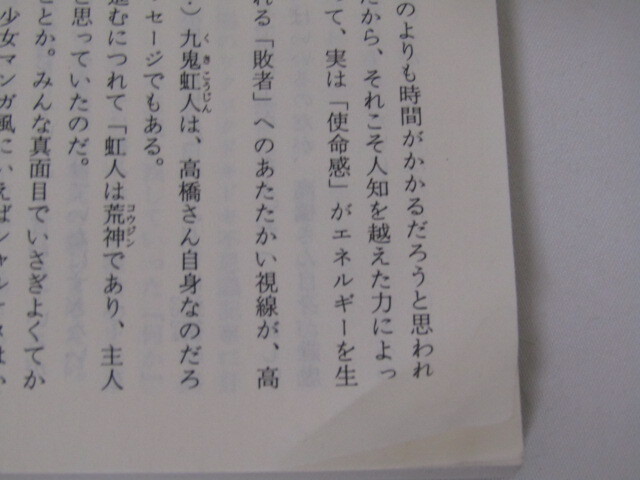 のよりも時間がかかるだろうと思われ
だから、それこそ人知を越えた力によっ
て、実は「使命感」がエネルギーを生
れる「敗者」へのあたたかい視線が、高
・）九鬼虹人は、高橋さん自身なのだろ
セージでもある。
進むにつれて「虹人は荒神であり、主人
と思っていたのだ。
ことか。みんな真面目でいさぎよくてか
少女マンガ風にいえば